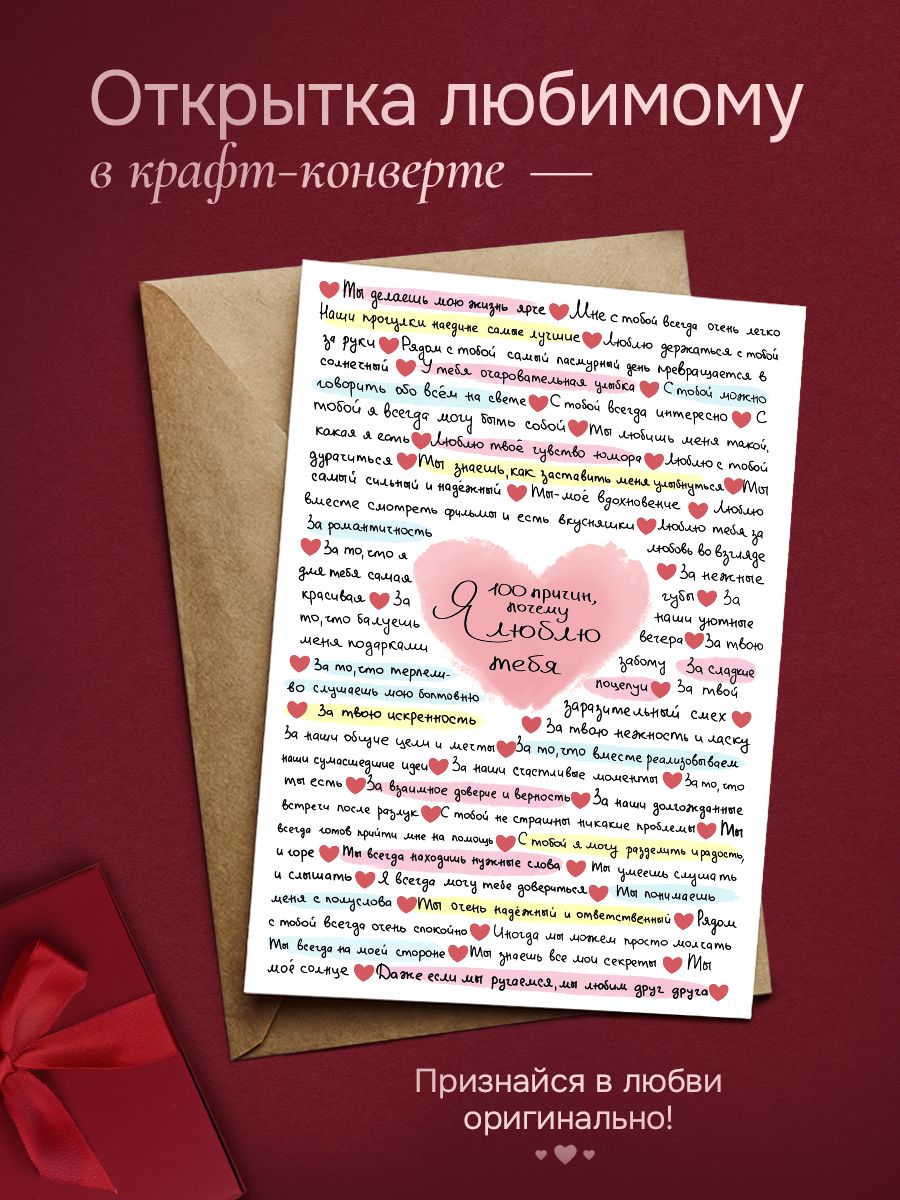 Открытка любимому
в крафт-конверте —
Ты делаешь мою жизнь ярче Мне с тобой всегда очень легко
Наши прогулки наедине самые лучшие Люблю держаться с тобой
за руки Рядом с тобой самый пасмурный день превращается в
солнечный У тебя очаровательная улыбка С тобой можно
говорить обо всём на свете С тобой всегда интересно С
тобой я всегда могу быть собой Ты любишь меня такой,
какая я есть Люблю твоё чувство юмора Люблю с тобой
дурачиться Ты знаешь, как заставить меня улыбнуться Ты
самый сильный и надёжный Ты-моё вдохновение Люблю
вместе смотреть фильмы и есть вкусняшки Люблю тебя за
За романтичность
любовь во взгляде
За то, что я
За нежные
для тебя самая
губы За
красивая За
наши уютные
то, что балуешь
вечера За твою
меня подарками
заботу За сладкие
Я 100 причин,
почему
люблю
тебя
За то, что терпели-
поцелуи За твой
во слушаешь мою болтовню
заразительный смех
За твою искренность
За твою нежность и ласку
За наши общие цели и мечты За то, что вместе реализовываем
наши сумасшедшие идеи За наши счастливые моменты За то, что
ты есть За взаимное доверие и верность За наши долгожданные
встречи после разлук С тобой не страшны никакие проблемы Ты
всегда готов прийти мне на помощь С тобой я могу разделить и радость,
и горе Ты всегда находишь нужные слова Ты умеешь слушать
и слышать Я всегда могу тебе довериться Ты понимаешь
меня с полуслова Ты очень надёжный и ответственный Рядом
с тобой всегда очень спокойно Иногда мы можем просто молчать
Ты всегда на моей стороне Ты знаешь все мои секреты Ты
моё солнце Даже если мы ругаемся, мы любим друг друга
Признайся в любви
оригинально!